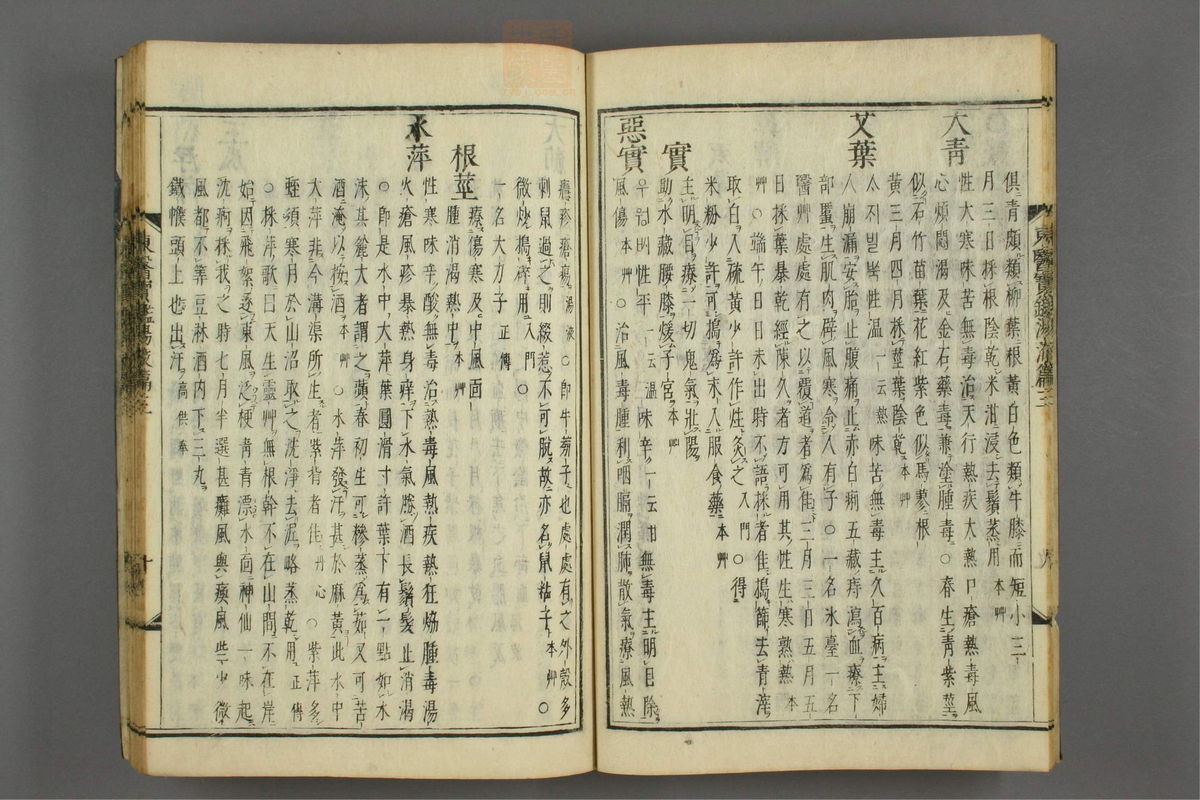 俱青頗類柳葉根黃白色類牛膝而短小三
月三日採根陰乾米泔浸去鬚蒸用本艸
大青
性大寒味苦無毒治天行熱疾大熱口瘡熱毒風
心煩悶渴及金石藥毒兼塗腫毒○春生青紫莖
似石竹苗葉花紅紫色似馬蓼根
黃三月四月採莖葉陰乾本艸
艾葉
性温一云熱味苦無毒主久百病主婦
人崩漏安胎止腹痛止赤白痢五藏痔瀉血療下
部䘌生肌肉辟風寒令人有子○一名氷臺一名
醫艸處處有之以覆道者爲佳三月三日五月五
日採葉暴乾經陳久者方可用其性生寒熟熱本
艸○端午日日未出時不語採者佳搗篩去青滓
取白入硫黃少許作炷灸之入門○得
米粉少許可搗爲末入服食藥本艸
實
主明目療一切鬼氣壯陽
助水藏腰膝煖子宮本艸
惡實
性平一云温味辛一云甘無毒主明目除
風傷本艸○治風毒腫利咽膈潤肺散氣療風熱
東醫寶鑑湯液篇三
九
癮疹瘡瘍湯液○即牛蒡子也處處有之外殼多
刺鼠過之則綴惹不可脫故亦名鼠粘子本艸○
微炒搗碎用入門○
一名大力子正傳
根莖
療傷寒及中風面
腫消渴熱中本艸
水萍
性寒味辛酸無毒治熱毒風熱疾熱狂熁腫毒湯
火瘡風疹暴熱身痒下水氣勝酒長鬚髮止消渴
○即是水中大萍葉圓濶寸許葉下有一點如水
沫其麄大者謂之蘋春初生可糝蒸爲茹又可苦
酒淹以按酒本艸○水萍發汗甚於麻黃此水中
大萍非今溝渠所生者紫背者佳丹心○紫萍多
蛭須寒月於山沼取之洗淨去泥略蒸乾用正傳
○採萍歌曰天生靈艸無根幹不在山間不在岸
始因飛絮逐東風泛梗青青漂水面神仙一味起
沈痾採我之時七月半選甚癱風與瘓風些少微
風都不筭豆淋酒內下三丸
鐵幞頭上也出汗高供奉
東醫寶鑑湯液篇三
十